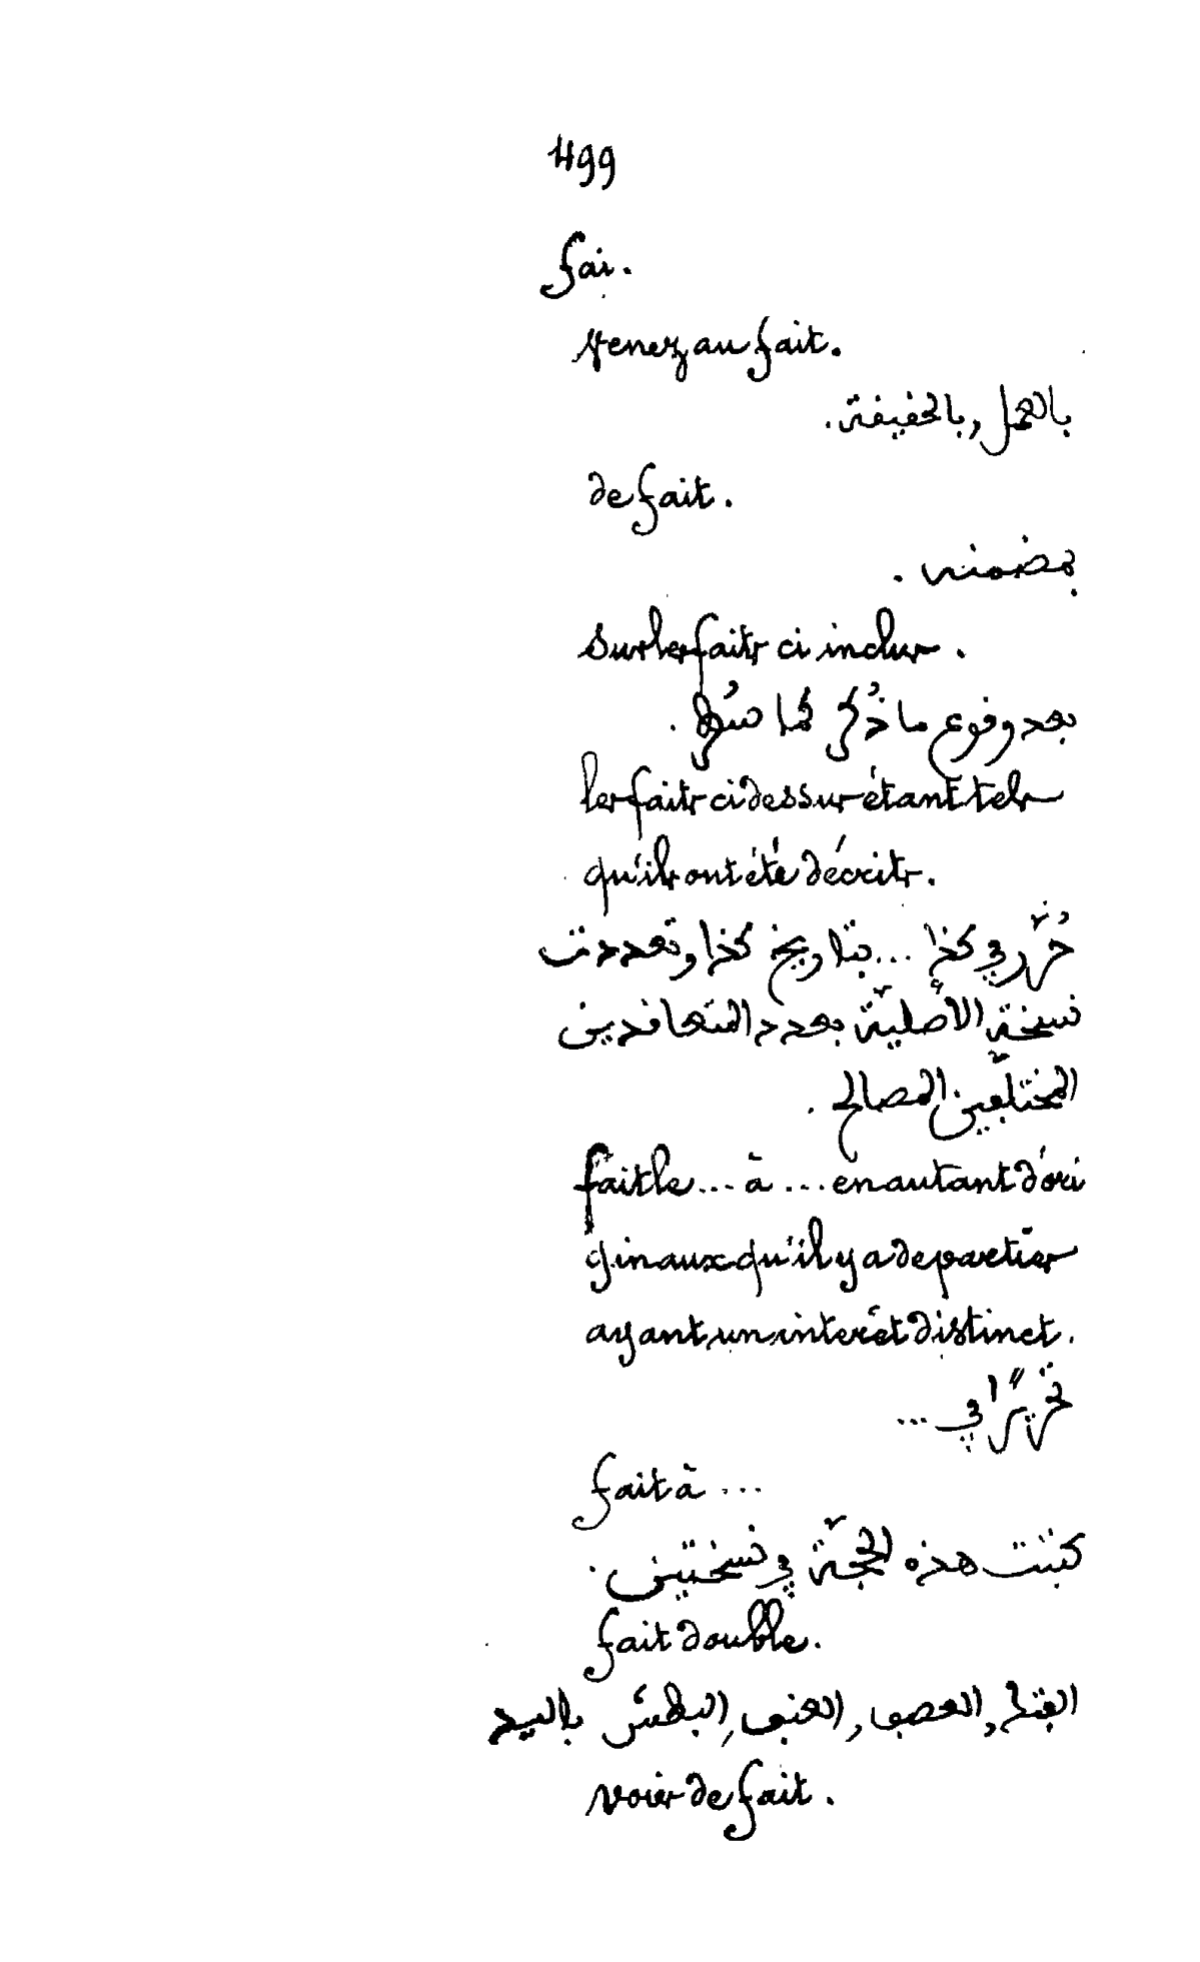 499
fai.
venez au fait.
بالعمل, بالحقيقة.
de fait.
بمضمنه.
sur les faits ci inclus.
بعد وقوع ما ذُكر كما سُطر.
les faits ci dessus étant tels
qu'ils ont été décrits.
حُرّر في كذا ... بتاريخ كذا وتعددت
نسخته الأصليّة بعدد المتعاقدين
المختلفين المصالح.
fait le ... à ... en autant d'ori
ginaux qu'il y a de parties
ayant un interêt distinct.
تحريرًا في ...
fait à ...
كتبت هذه الحجّة في نسختين.
fait double.
الفتك, العصب, العنف, البطش باليد
voies de fait.